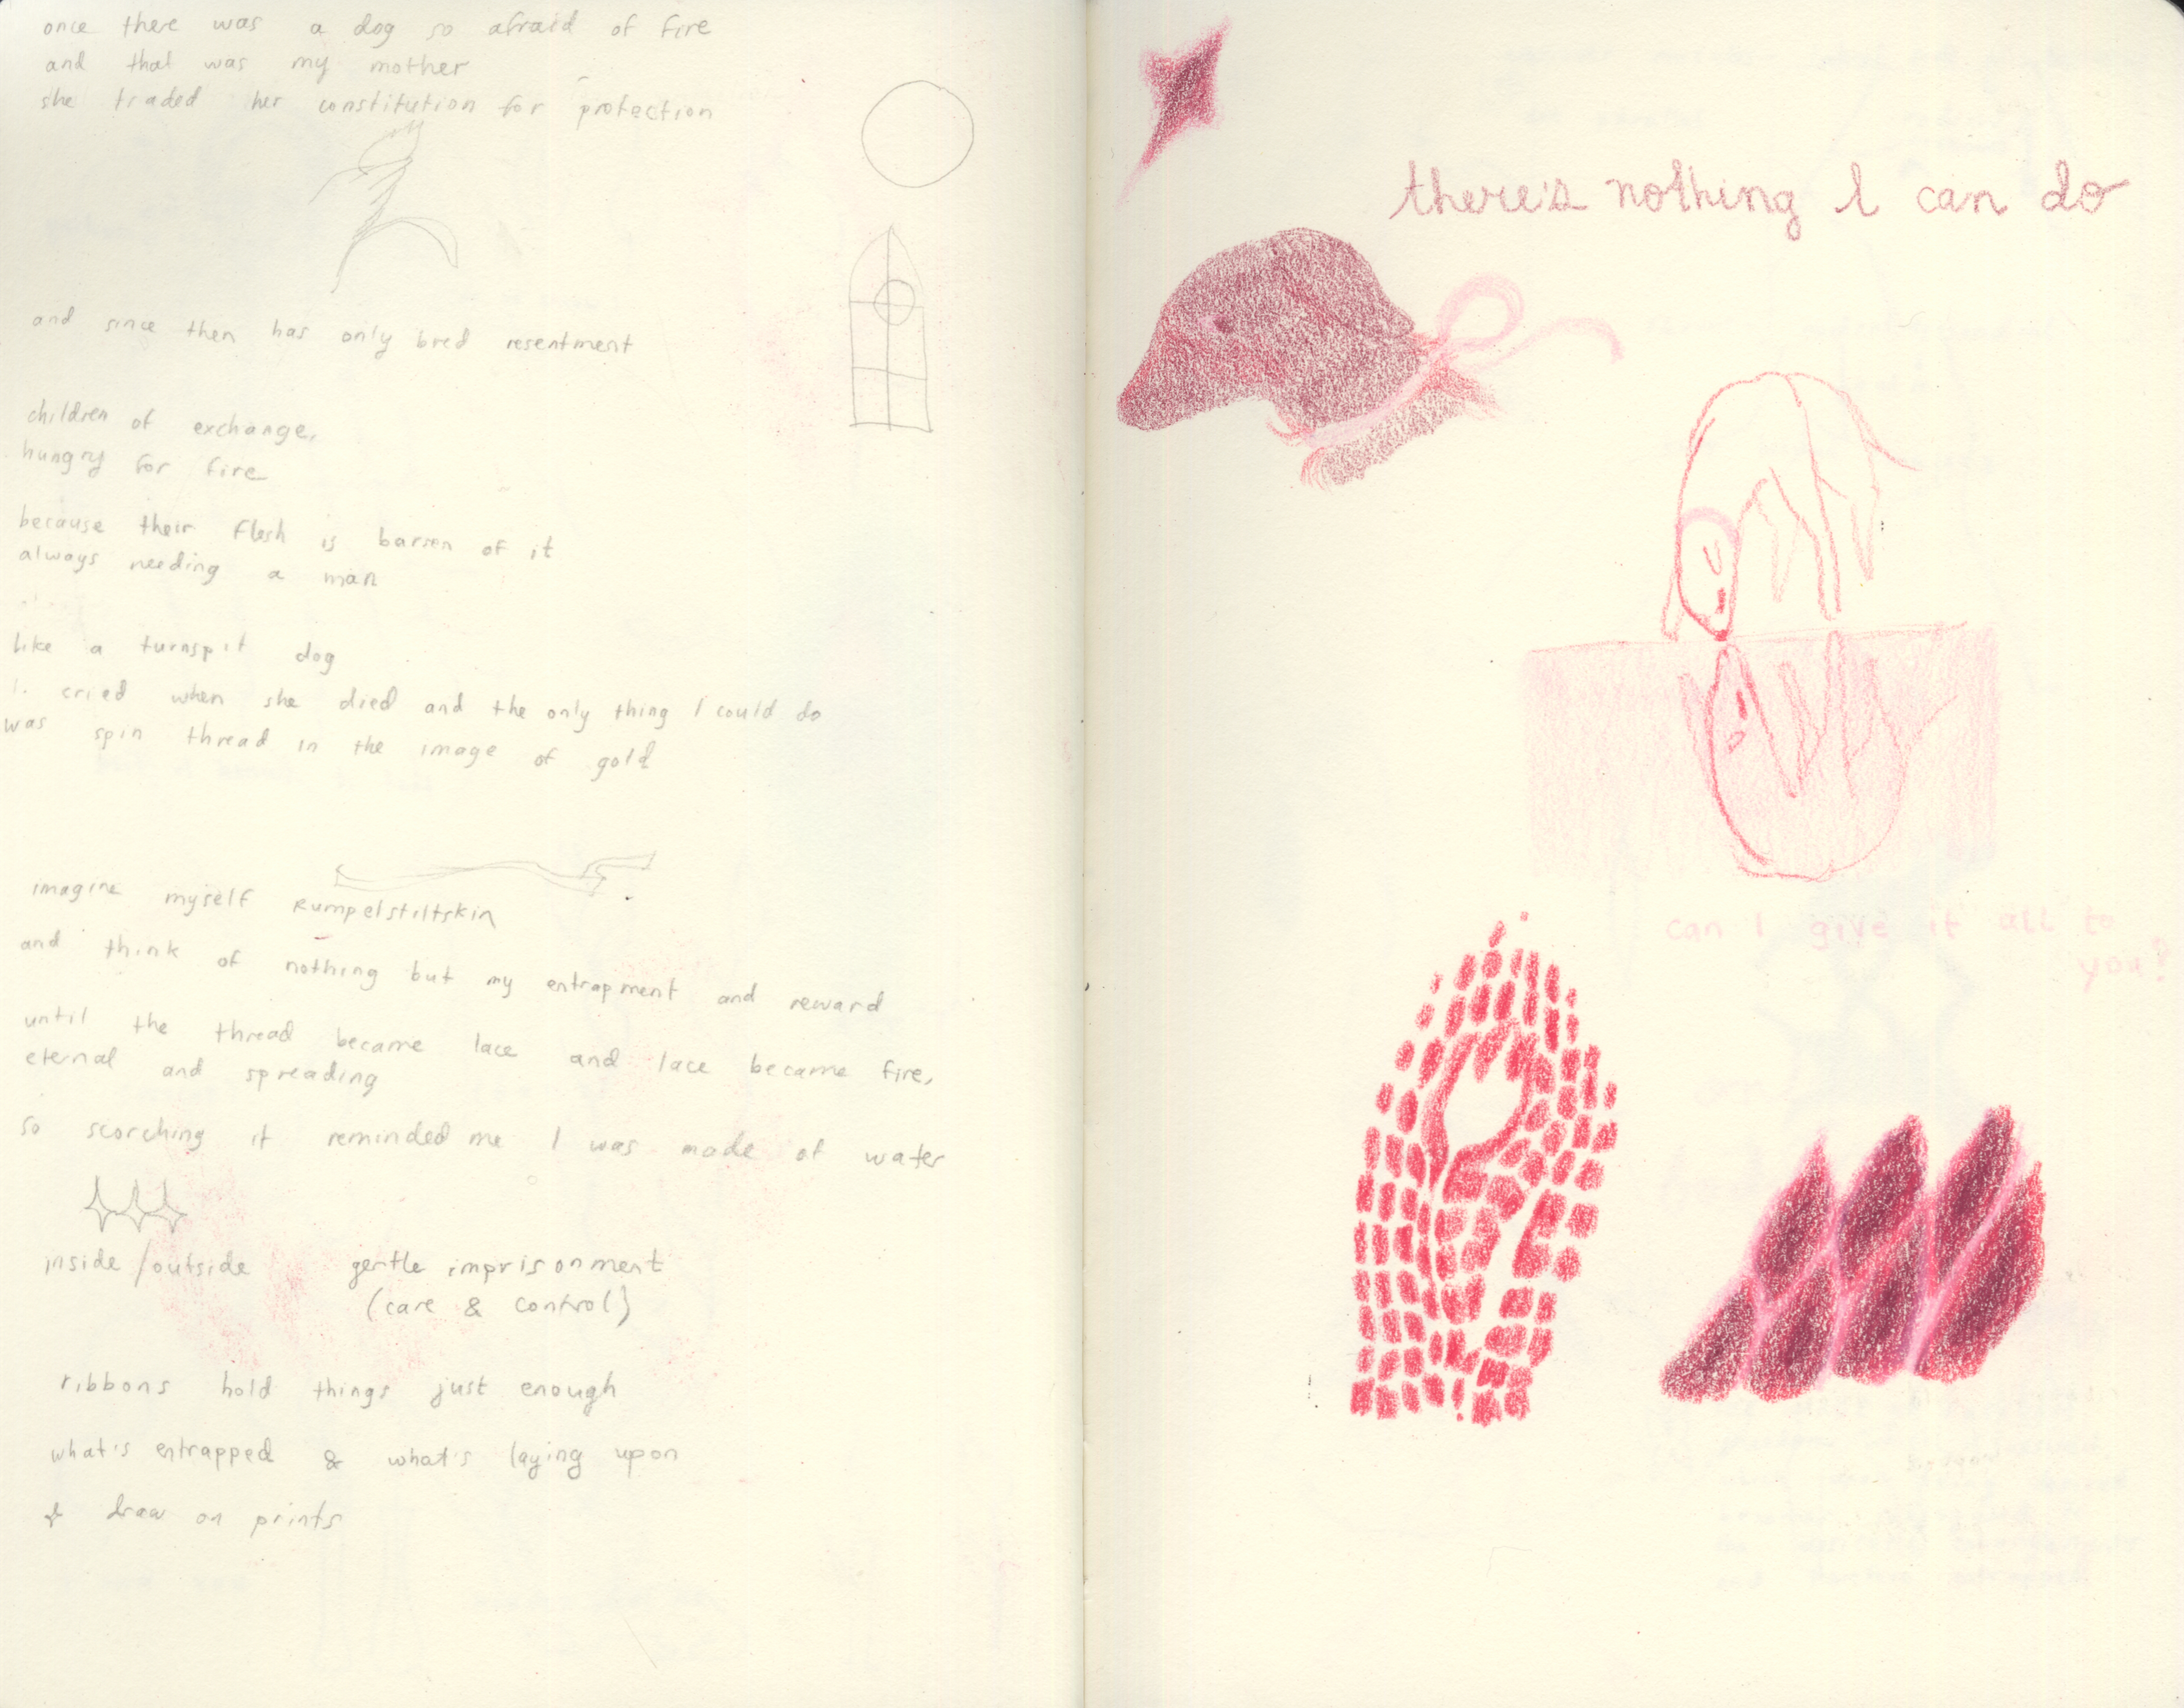 once there was a dog so afraid of fire
and that was my mother
she traded her constitution for protection
and since then has only bred resentment
children of exchange,
hungry for fire
because their flesh is barren of it
always needing a man
like a turnspit dog
I cried when she died and the only thing I could do
was spin thread in the image of gold
imagine myself Rumpelstiltskin
and think of nothing but my entrapment and reward
until the thread became lace and lace became fire,
eternal and spreading
so scorching it reminded me I was made of water
inside/outside
gentle imprisonment
(care & control)
ribbons hold things just enough
what's entrapped & what's laying upon
draw on prints
there's nothing I can do
can I give it all to
you?